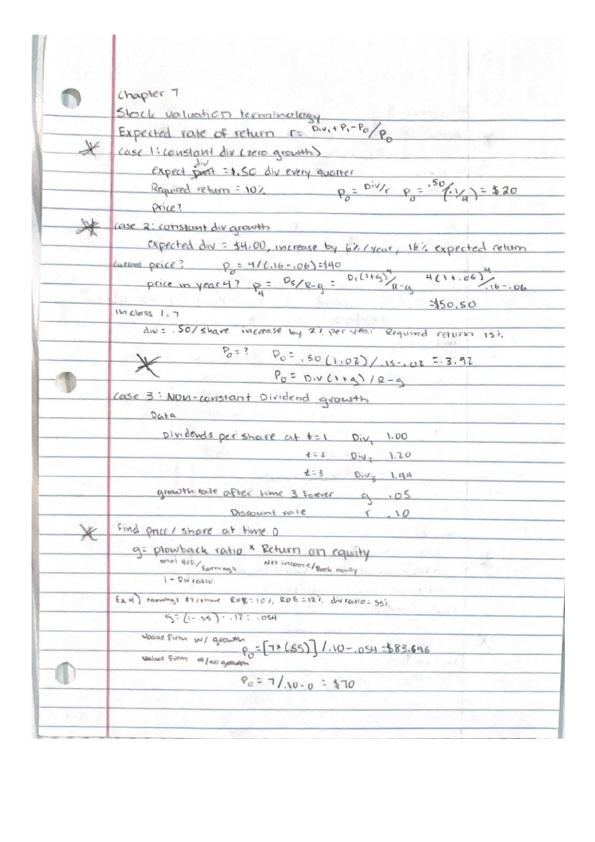 Chapter 7
Stock valuation terminology
Expected rate of return r= Div₁+P₁-P₀/P₀
case 1: constant div (zero growth)
expect div = $.50 div every quarter
Required return = 10% P₀ = Div/r P₀ = .50/(.1/4) = $20
Price?
case 2: constant div growth
expected div = $4.00, increase by 6%/year, 16% expected return
current price? P₀ = 4/(.16-.06)=$40
price in year 4? P₄ = D5/R-g = D₁(1+g)⁴/R-g 4(1+.06)⁴/.16-.06
=$50.50
In class 1.7
div = .50/share increase by 2% per year Required return 15%
P₀=? P₀ = .50(1.02)/.15-.02 = 3.92
P₀ = Div(1+g)/R-g
case 3: Non-constant Dividend growth
Data
Dividends per share at t=1 Div₁ 1.00
t=2 Div₂ 1.20
t=3 Div₃ 1.44
growth rate after time 3 forever g .05
Discount rate r .10
Find price/share at time 0
g= plowback ratio * Return on equity
Earnings Net income/Book equity
1 - Div ratio
Ex 4) earnings $7/share ROR=10%, ROE=12%, div ratio=55%
g=(1-.55)·.12=.054
Value Firm w/ growth
P₀=[7*(.55)]/.10-.054=$83.696
Value Firm w/no growth
P₀ = 7/.10-0 = $70